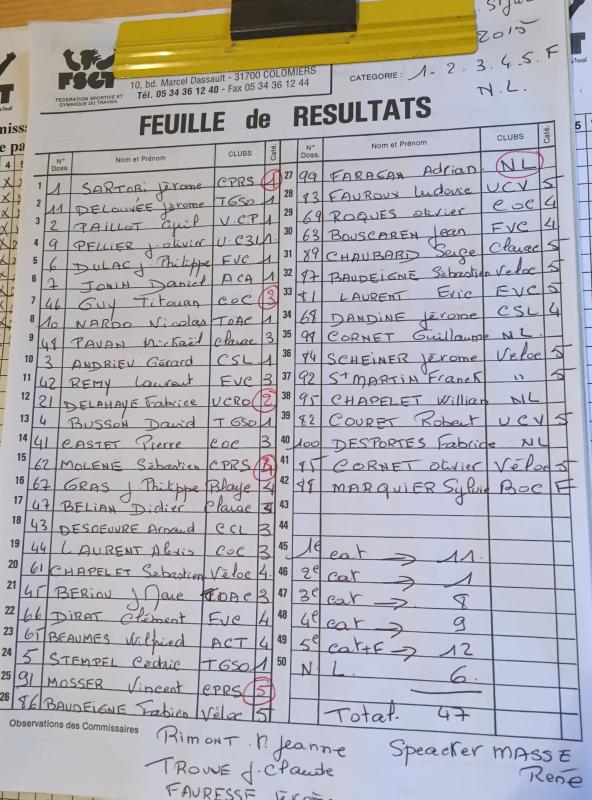 2015
FSGT
FEDERATION SPORTIVE ET
GYMNIQUE DU TRAVAIL
10, bd. Marcel Dassault - 31700 COLOMIERS
Tél. 05 34 36 12 40 - Fax 05 34 36 12 44
CATEGORIE : 1-2.3.4.5.F
N.L.
FEUILLE de RESULTATS
N° Doss. Nom et Prénom CLUBS Caté.
1 1 SARTORI Jérome CPRS 1
2 11 DELOUVÉE Jérome TGSO 1
3 2 PAILLOT Cyril V.CP 1
4 9 PELLIER J-olivier U.C31 1
5 6 DULAC J-Philippe EVC 1
6 7 JONIN Daniel ACA 1
7 46 GUY Titouan COC 3
8 10 NARDO Nicolas TOAC 1
9 48 PAVAN Mickaïl Clarac 3
10 3 ANDRIEU Gérard CSL 1
11 42 REMY Laurent EVC 3
12 21 DELAHAYE Fabrice UCRO 2
13 4 BUSSON David TGSO 1
14 41 CASTET Pierre COC 3
15 62 MOLENE Sébastien CPRS 4
16 67 GRAS J Philippe Blaye 4
17 47 BELIAN Didier Clarac 3
18 43 DESOEUVRE Arnaud CCL 3
19 44 LAURENT Alexis COC 3
20 61 CHAPELET Sebastien Véloc 4
21 45 BERIOU J Marc TOAC 3
22 66 DIRAT Clément EVC 4
23 65 BEAUMES Wilfried ACT 4
24 5 STEMPEL Cédric TGSO 1
25 91 MOSSER Vincent CPRS 5
26 86 BAUDEIGNE Fabien Véloc 5
N° Doss. Nom et Prénom CLUBS Caté.
27 99 FARAGAN Adrian. NL
28 83 FAUROUX Ludovic UCV 5
29 69 ROQUES olivier COC 4
30 63 BOUSCAREN Jean EVC 4
31 89 CHAUBARD Serge Clarac 5
32 87 BAUDEIGNE Sébastien Véloc 5
33 81 LAURENT Eric EVC 5
34 68 DANDINE Jérome CSL 4
35 CORNET Guillaume NL.
36 84 SCHEINER Jérome Véloc 5
37 92 St MARTIN Franck " 5
38 95 CHAPELET Willian NL
39 82 COURET Robert UCV 5
40 100 DESPORTES Fabrice NL
41 85 CORNET olivier Véloc 5
42 88 MARQUIER Sylvie BOC F
43
44
45 1e cat → 11.
46 2e cat → 1
47 3e cat → 8
48 4e cat → 9
49 5e cat+F → 12
50 N L. 6.
Total. 47
Observations des Commissaires
RIMONT. M Jeanne
TROUVE J. Claude
FAURESSE
Speacker MASSE
René